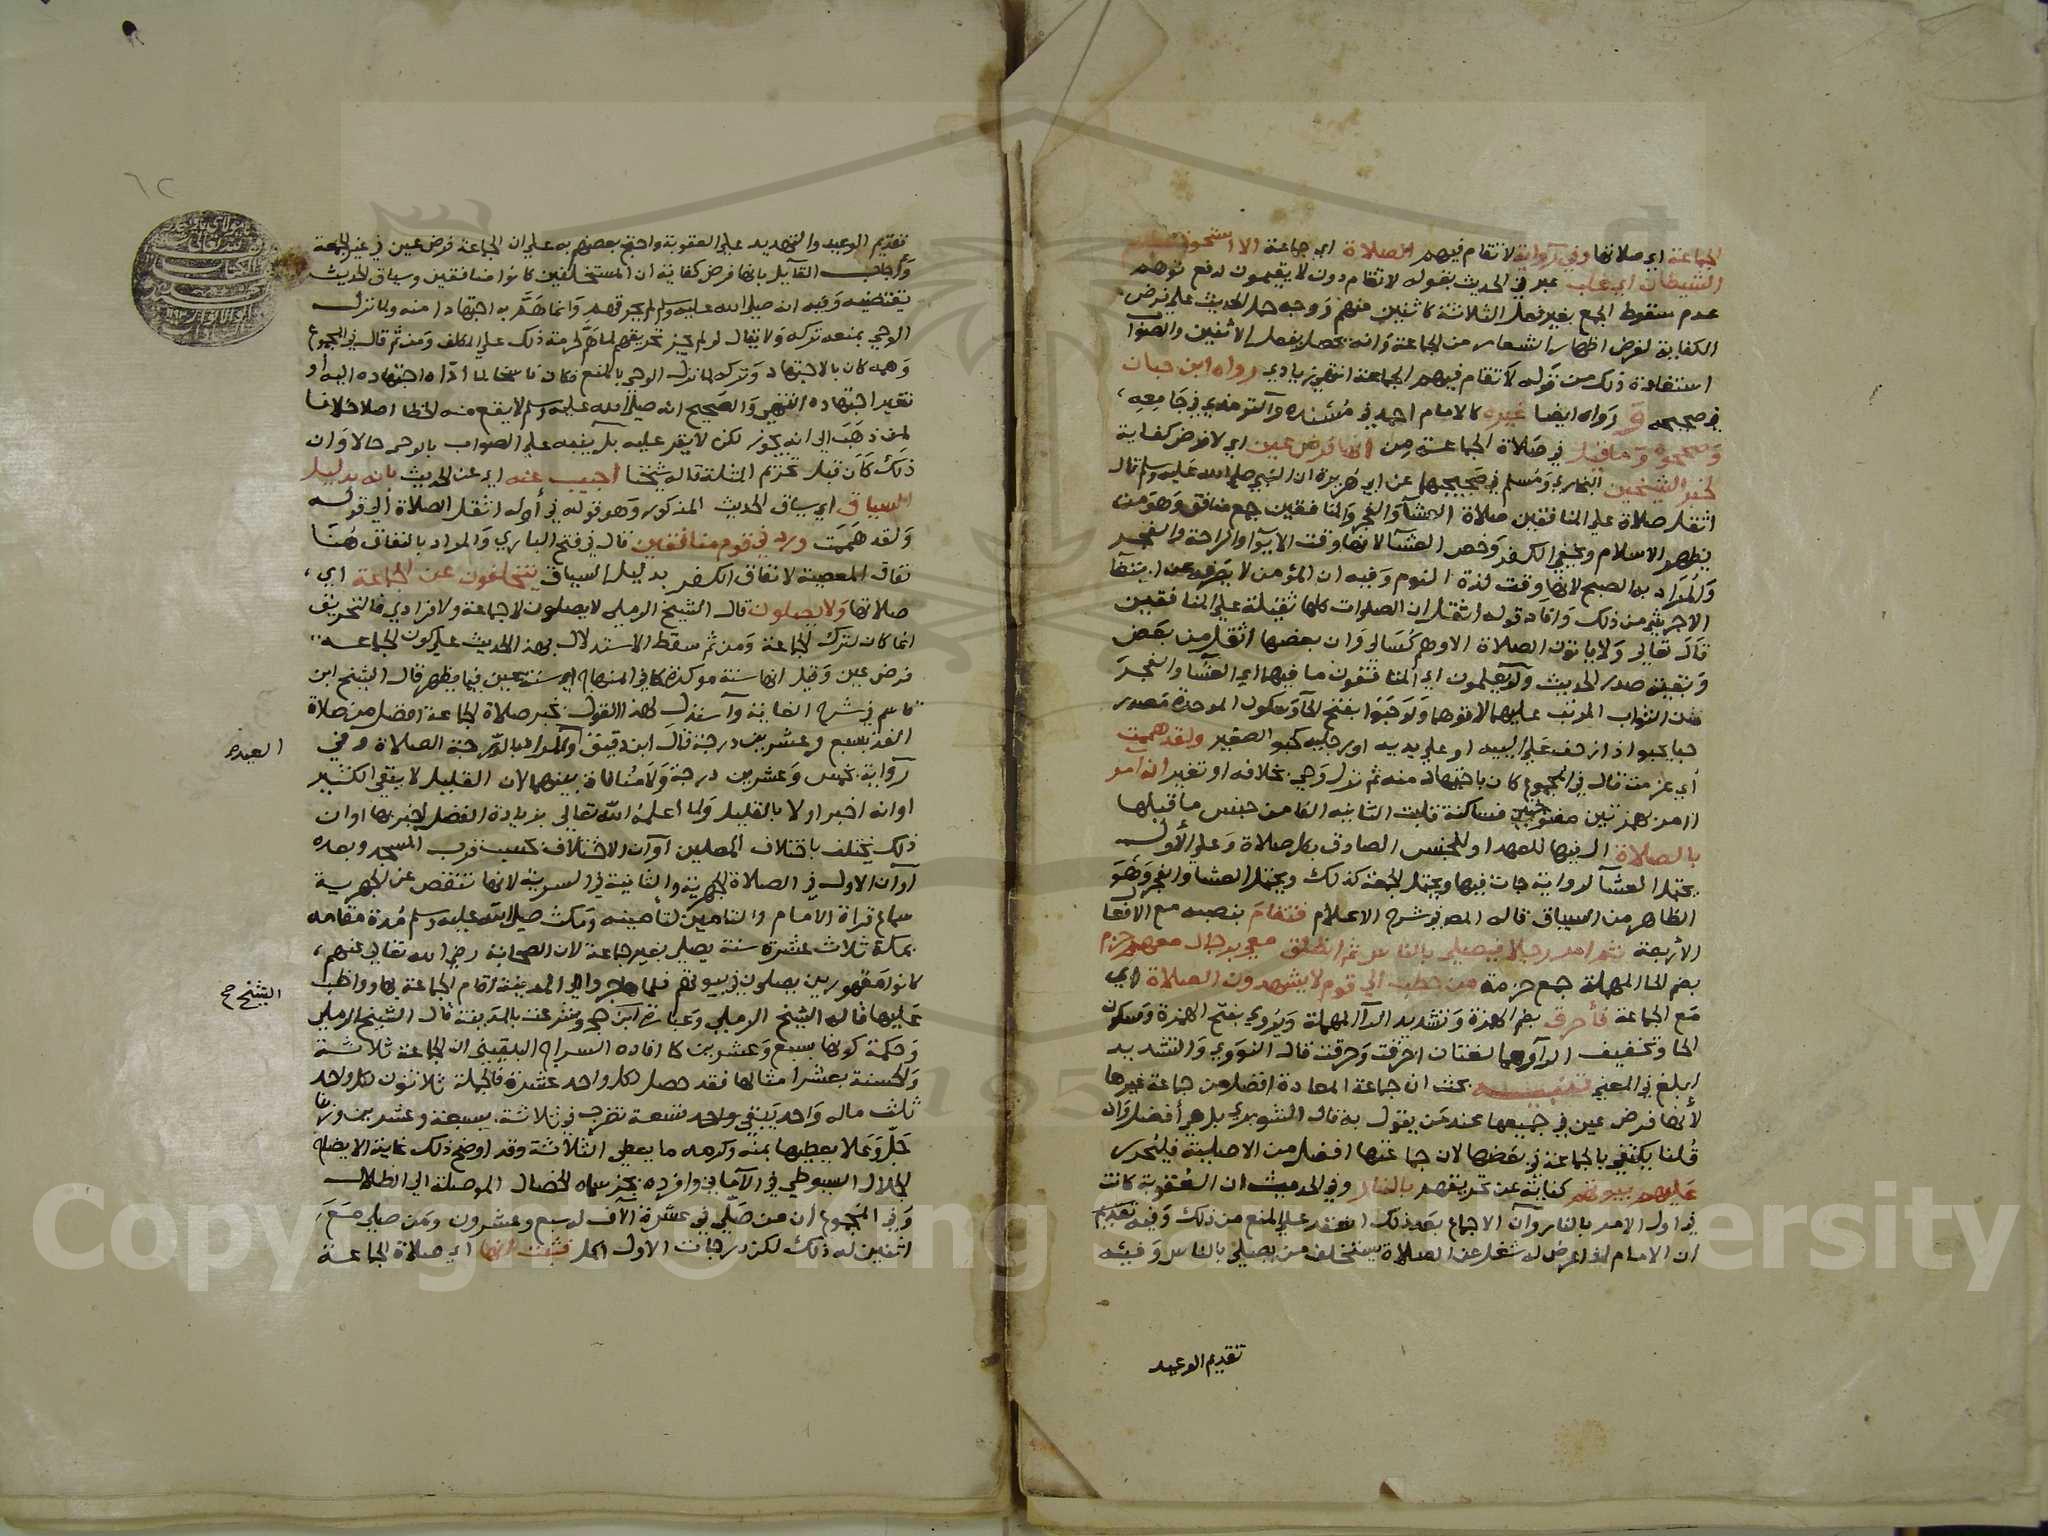 الجماعة اي صلاتها وفي رواية لا تقام فيهم الصلاة اي جماعة الا استحوذ عليهم
الشيطان اي غلب عبر في الحديث بقوله لا تقام دون لا يقيمون لدفع توهم
عدم سقوط الجمع بغير فعل الثلاثة كاثنين منهم ووجه حمل الحديث علي فرض
الكفاية لغرض اظهار الشعار من الجماعة وانه يحصل بفعل الاثنين والصواب
استفادة ذلك من قوله لا تقام فيهم الجماعة انتهي زيادي رواه ابن حبان
في صحيحه و رواه ايضا غيره كالامام احمد في مسنده والترمذي في جامعه
وصححوه وما قيل في صلاة الجماعة من انها فرض عين اي لا فرض كفاية
لخبر الشيخين البخاري ومسلم في صحيحيهما عن ابي هريرة ان النبي صلي الله عليه وسلم قال
اثقل صلاة علي المنافقين صلاة العشاء والفجر والمنافقين جمع منافق وهو من
يظهر الاسلام ويخفي الكفر وخص العشا لانها وقت الايوا والراحة والفجر
والمراد بها الصبح لانها وقت لذة النوم وفيه ان المؤمن لا
الاجر شي من ذلك وافاد قوله اثقل ان الصلوات كلها ثقيلة علي المنافقين
قال تعالي ولا ياتون الصلاة الا وهم كسالي وان بعضها اثقل من بعض
وبقية صدر الحديث ولو يعلمون اي المنافقون ما فيهما اي العشا والفجر
من الثواب المرتب عليهما لاتوهما ولو حبوا بفتح الحا وسكون الموحدة مصدر
حبا يحبوا اذا زحف علي الييه او علي يديه او رجليه كحبو الصغير ولقد هممت
أي عزمت قال في المجموع كان باجتهاد منه ثم نزل وحي بخلافه او تغير ان آمر
اامر بهمزتين مفتوحتين فساكنة قلبت الثانيه الفا من جنس ما قبلها
بالصلاة ال فيها للعهد او للجنس الصادق بكل صلاة وعلي الأول
يحتمل العشا لرواية جات فيها ويحتمل الجمعة كذلك ويحتمل العشا والفجر وهو
الظاهر من السياق قاله المص في شرح الاعلام فتقام بنصبه مع الافعال
الأربعة ثم امر رجلا فيصلي بالناس ثم انطلق معي برجال معهم حزم
بضم الحا المهملة جمع حزمة من حطب الي قوم لا يشهدون الصلاة اي
مع الجماعة فأحرق بضم الهمزة وتشديد الرآ المهملة ويروي بفتح الهمزة وسكون
الحا وتخفيف الرا وهما لغتان احرقت وحرقت قال النووي والتشديد
ابلغ في المعني بحث ان جماعة المعادة افضل من جماعة غيرها
لأنها فرض عين في جميعها عند من يقول به قال الشوبري بل هي أفضل وان
قلنا يكتفي بالجماعة في بعضها لان جماعتها افضل من الاصلية فليحرر
عليهم بيوتهم كناية عن تحريقهم بالنار وفي الحديث ان العقوبة كانت
في اول الامر بالنار وآن الاجماع بعد ذلك انعقد علي المنع من ذلك وفيه تقديم
ان الامام اذا عرض له شغل عن الصلاة يستخلف من يصلي بالناس وفيه
تقديم الوعيد
تقديم الوعيد والتهديد علي العقوبة واحتج بعضهم به علي ان الجماعة فرض عين في غير الجمعة
وأجاب القايل بانها فرض كفاية ان المستخلفين كانوا منافقين وسياق الحديث
يقتضيه وفيه انه صلي الله عليه وسلم لم يحرقهم وانما هم به اجتهادا منه ولما نزل
الوحي بمنعه تركه ولا يقال لو لم يجز تحريقهم لما هم لحرمة ذلك علي المكلف ومن ثم قال في المجموع
وهمه كان بالاجتهاد وتركه لما نزل الوحي بالمنع فكان ناسخا لما اداه اجتهاده اليه او
تغير اجتهاده انتهي والصحيح انه صلي الله عليه وسلم لا يقع منه الخطا اصلا خلافا
لمن ذهب الي انه يجوز لكن لا يقر عليه بل ينبه علي الصواب بالوحي حالا وان
ذلك كان قبل تحريم المثلة قاله شيخنا اجيب عنه اي عن الحديث بانه بدليل
السياق اي سياق الحديث المذكور وهو قوله في أوله اثقل الصلاة الي قوله
ولقد هممت ورد في قوم منافقين قال في فتح الباري والمراد بالنفاق هنا
نفاق المعصية لا نفاق الكفر بدليل السياق يتخلفون عن الجماعة اي
صلاتها ولا يصلون قال الشيخ الرملي لا يصلون لا جماعة ولا فرادي فالتحريق
انما كان لترك الجماعة ومن ثم سقط الاستدلال بهذا الحديث علي كون الجماعة
فرض عين وقيل انها سنة موكدة كما في المنهاج اي سنة عين فيما يظهر قال الشيخ ابن
قاسم في شرح الغاية وآستدل لهذا القول بخبر صلاة الجماعة افضل من صلاة
الفذ بسبع وعشرين درجة قال ابن دقيق والمراد بالدرجة الصلاة وفي
العيد
رواية بخمس وعشرين درجة ولا منافاة بينهما لان القليل لا ينفي الكثير
او انه اخبر اولا بالقليل ولما اعلمه الله تعالي بزيادة الفضل اخبر بها او ان
ذلك يختلف باختلاف المصلين أو ان الاختلاف بحسب قرب المسجد وبعده
أو ان الاول في الصلاة الجهرية والثانية في السرية لانها تنقص عن الجهرية
سماع قراة الامام والتامين لتامينه ومكث صلي الله عليه وسلم مدة مقامه
بمكة ثلاث عشرة سنة يصلي بغير جماعة لان الصحابة رضي الله تعالي عنهم
كانوا مقهورين يصلون في بيوتهم فلما هاجروا الي المدينة اقام الجماعة بها وواظب
الشيخ صح
عليها قاله الشيخ الرملي وعبارة ابن حجر وشرعت بالمدينة قال الشيخ الرملي
وحكمة كونها بسبع وعشرين كما افاده السراج البلقيني ان الجماعة ثلاثة
والحسنة بعشر امثالها فقد حصل لكل واحد عشرة فالجملة ثلاثون لكل واحد
ثلث ماله واحد يبقي واحد تسعة تضرب في ثلاثة بسبعة وعشرين وربنا
جل وعلا يعطيها بمنه وكرمه ما يعطي الثلاثة وقد اوضح ذلك غاية الايضاح
الجلال السيوطي في الآمالي وافرده بجز سماه الخصال الموصلة الي الظلال
وفي المجموع ان من صلي في عشرة الاف له سبع وعشرون ومن صلي مع
اثنين له ذلك لكن درجات الاول اكمل فثبت انها اي صلاة الجماعة
Copyright © King Saud University
1957